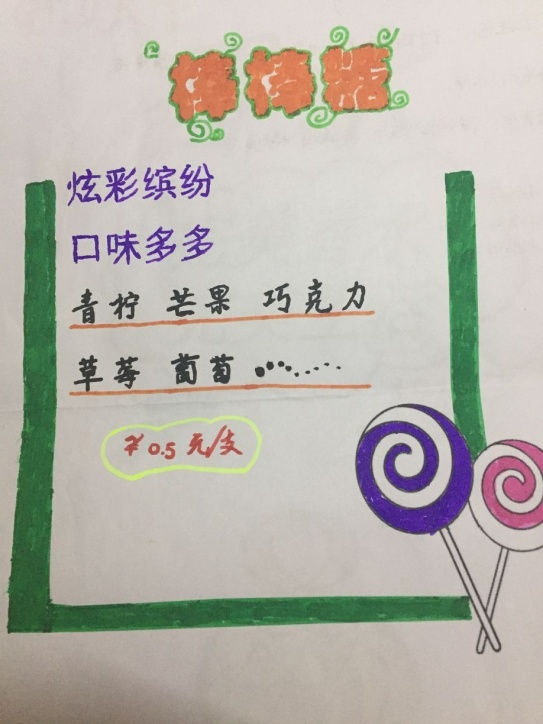 棒棒糖
炫彩缤纷
口味多多
青柠 芒果 巧克力
草莓 葡萄 ●●●……
¥0.5元/支